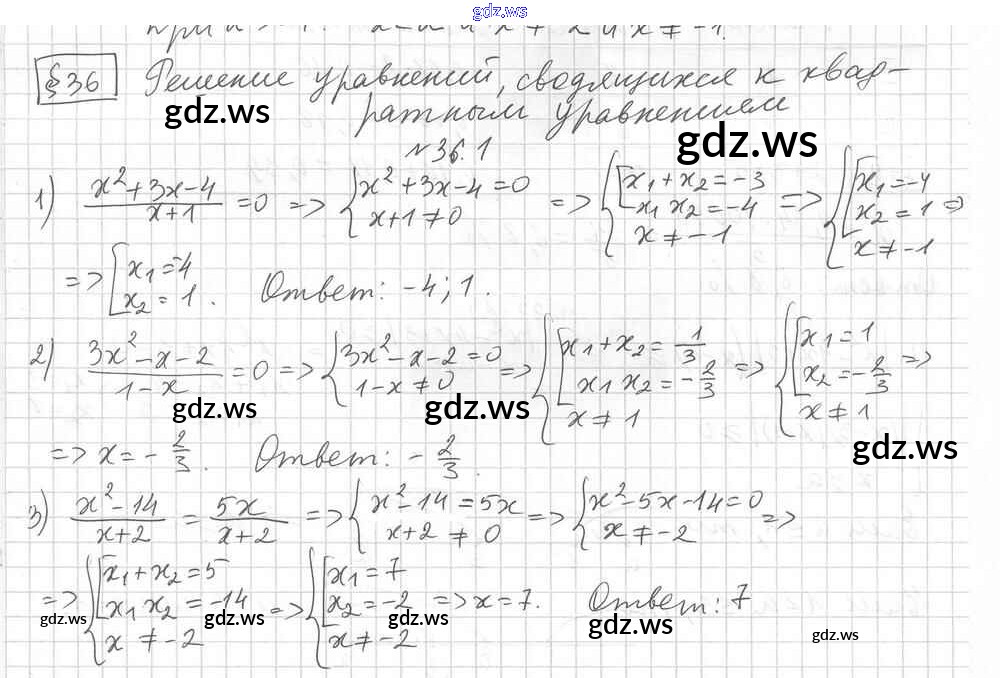 gdz.ws
при
§36 Решение уравнений, сводящихся к квад-
gdz.ws ратным уравнением gdz.ws
№36.1
1) (x²+3x-4)/(x+1) = 0 => { x²+3x-4=0 x+1≠0 => { [ x₁+x₂=-3 x₁x₂=-4 x≠-1 => { [ x₁=-4 x₂=1 x≠-1 =>
=> [ x₁=-4 x₂=1. Ответ: -4; 1.
2) (3x²-x-2)/(1-x) = 0 => { 3x²-x-2=0 1-x≠0 => { [ x₁+x₂=1/3 x₁x₂=-2/3 x≠1 => { [ x₁=1 x₂=-2/3 x≠1 =>
gdz.ws gdz.ws gdz.ws
=> x=-2/3. Ответ: -2/3.
3) (x²-14)/(x+2) = 5x/(x+2) => { x²-14=5x x+2≠0 => { x²-5x-14=0 x≠-2 =>
=> { [ x₁+x₂=5 x₁x₂=-14 x≠-2 => { [ x₁=7 x₂=-2 x≠-2 => x=7. Ответ: 7
gdz.ws gdz.ws gdz.ws gdz.ws gdz.ws